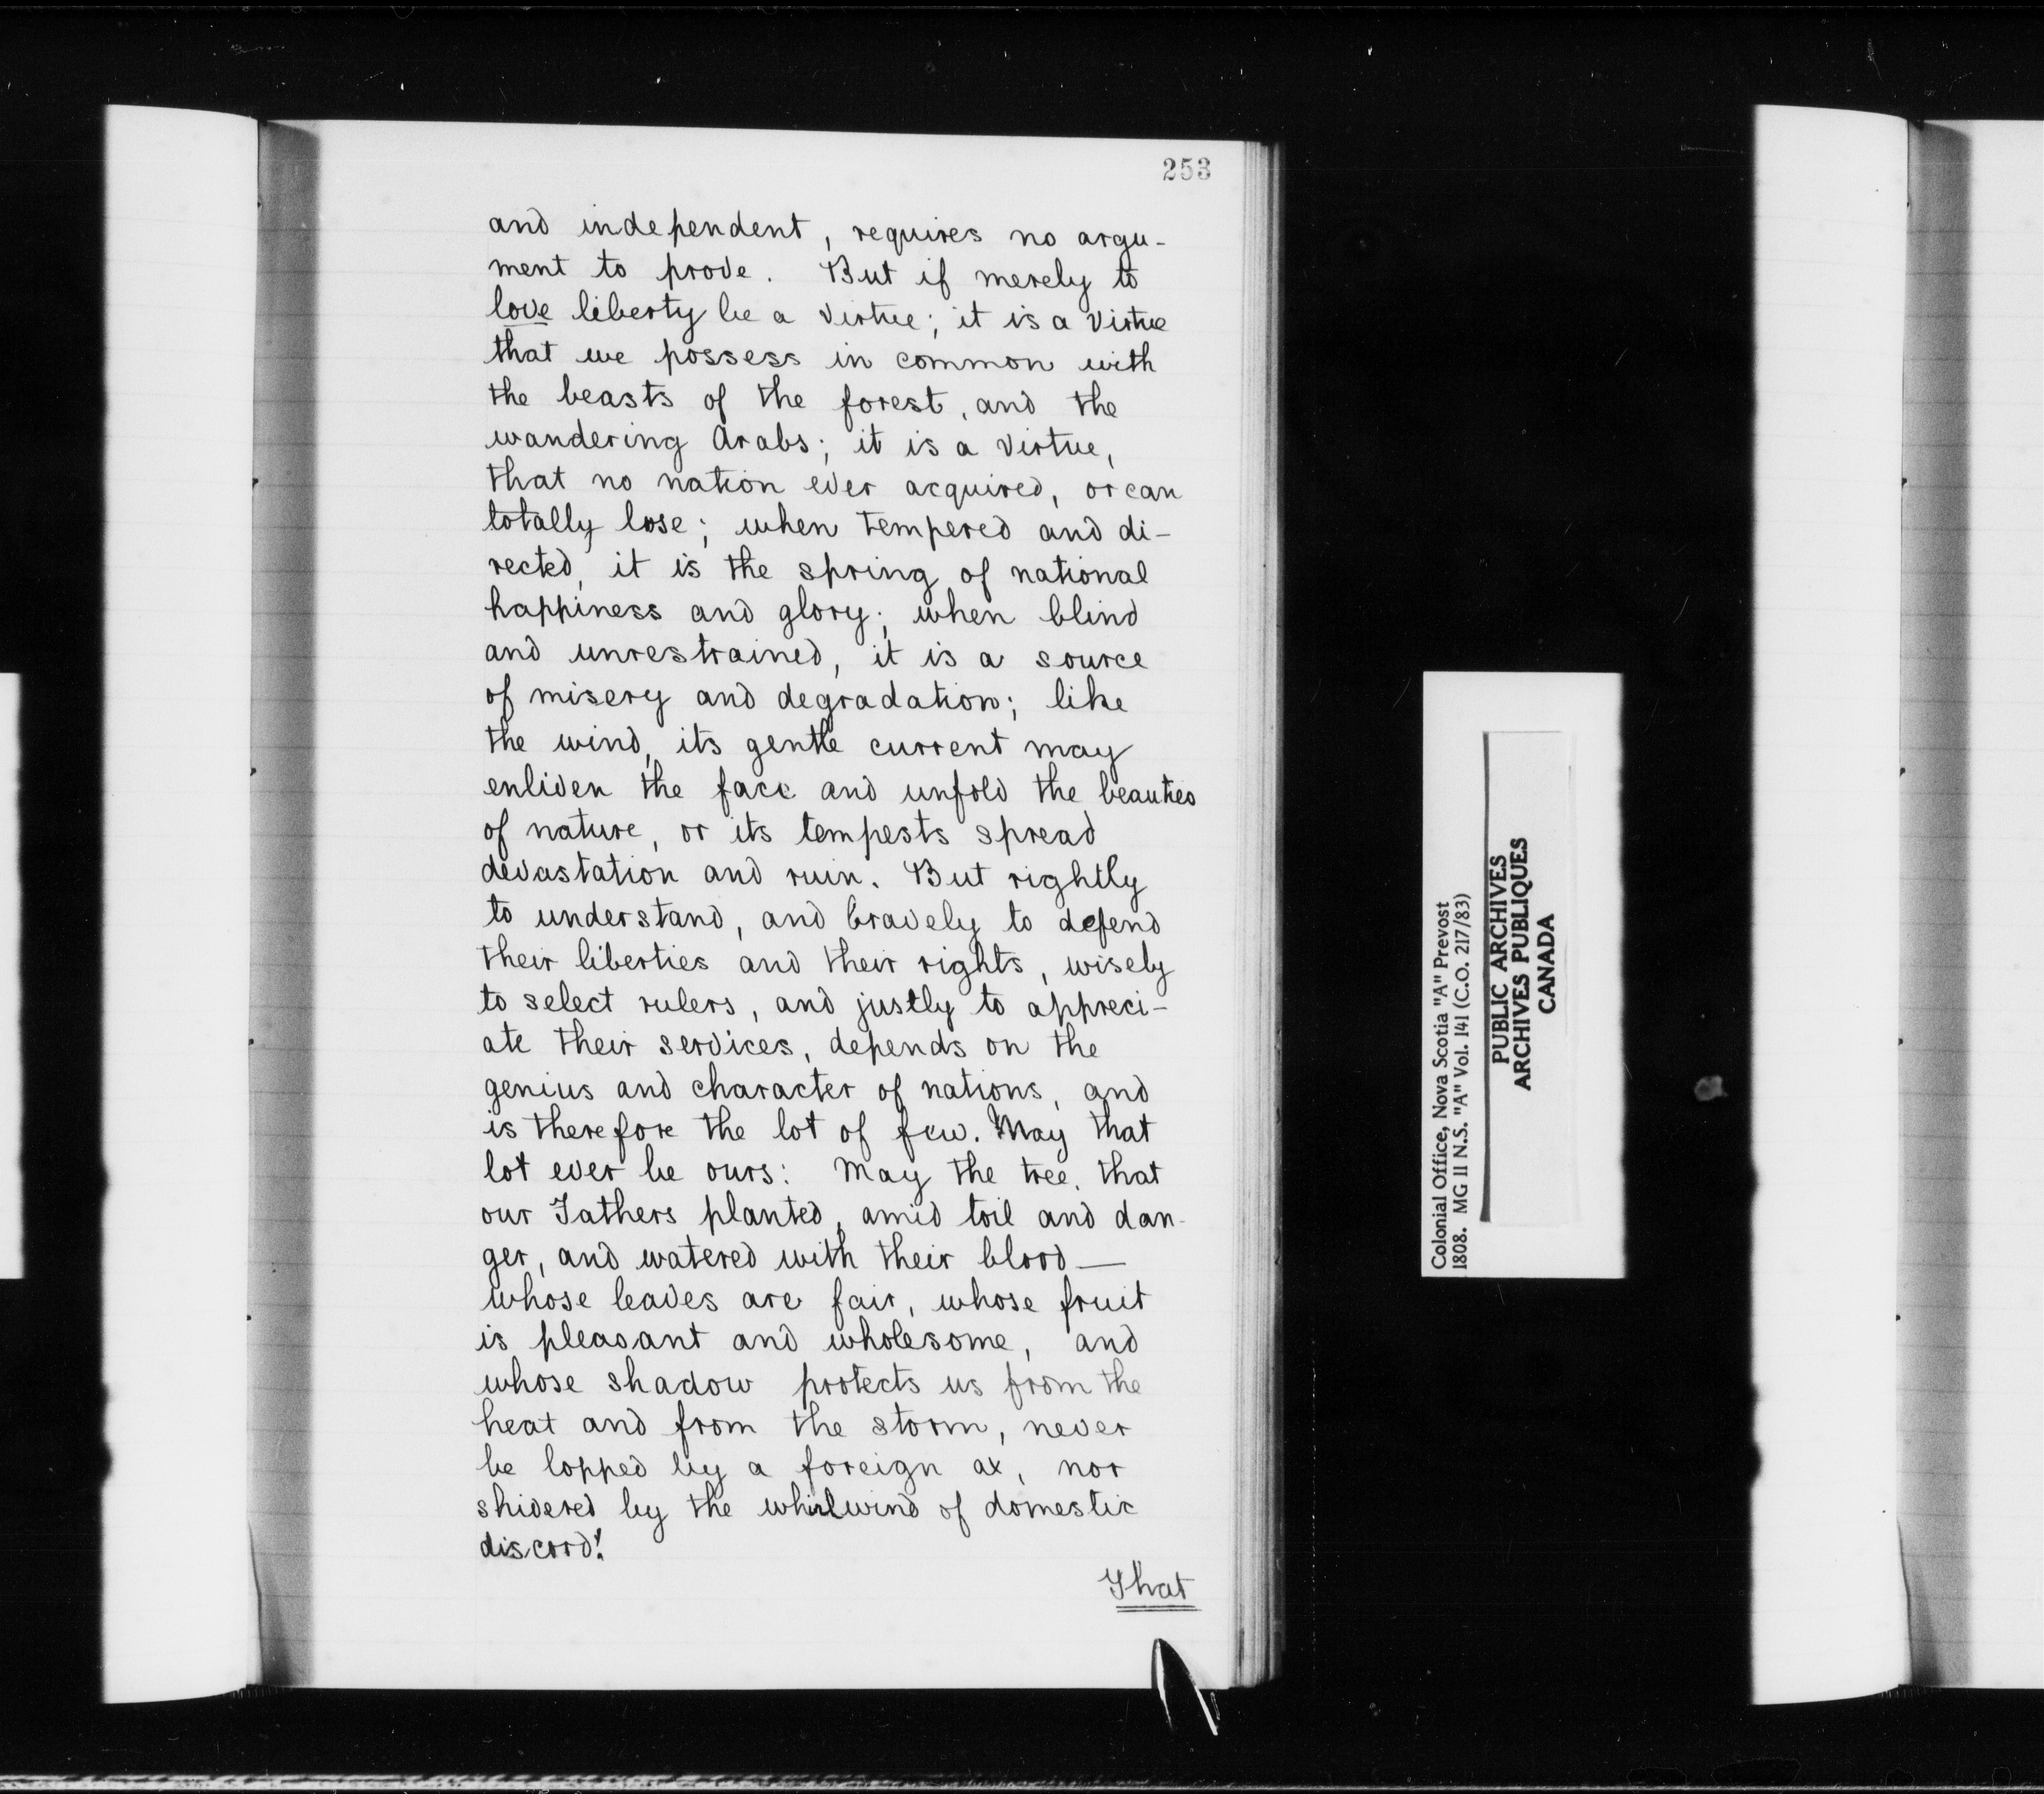 253
and independent, requires no argu-
ment to prove. But if merely to
love liberty be a virtue; it is a virtue
that we possess in common with
the beasts of the forest, and the
wandering Arabs; it is a virtue,
that no nation ever acquired, or can
totally lose; when tempered and di-
rected, it is the spring of national
happiness and glory; when blind
and unrestrained, it is a source
of misery and degradation; like
the wind, its gentle current may
enliven the face and unfold the beauties
of nature, or its tempests spread
devastation and ruin. But rightly
to understand, and bravely to defend
their liberties and their rights, wisely
to select rulers, and justly to appreci-
ate their services, depends on the
genius and character of nations, and
is therefore the lot of few. May that
lot ever be ours: May the tree, that
our Fathers planted, amid toil and dan-
ger, and watered with their blood—
whose leaves are fair, whose fruit
is pleasant and wholesome, and
whose shadow protects us from the
heat and from the storm, never
be lopped by a foreign ax, nor
shivered by the whirlwind of domestic
discord!
That
Colonial Office, Nova Scotia "A" Prevost
1808. MG 11 N.S. "A" Vol. 141 (C.O. 217/83)
PUBLIC ARCHIVES
ARCHIVES PUBLIQUES
CANADA